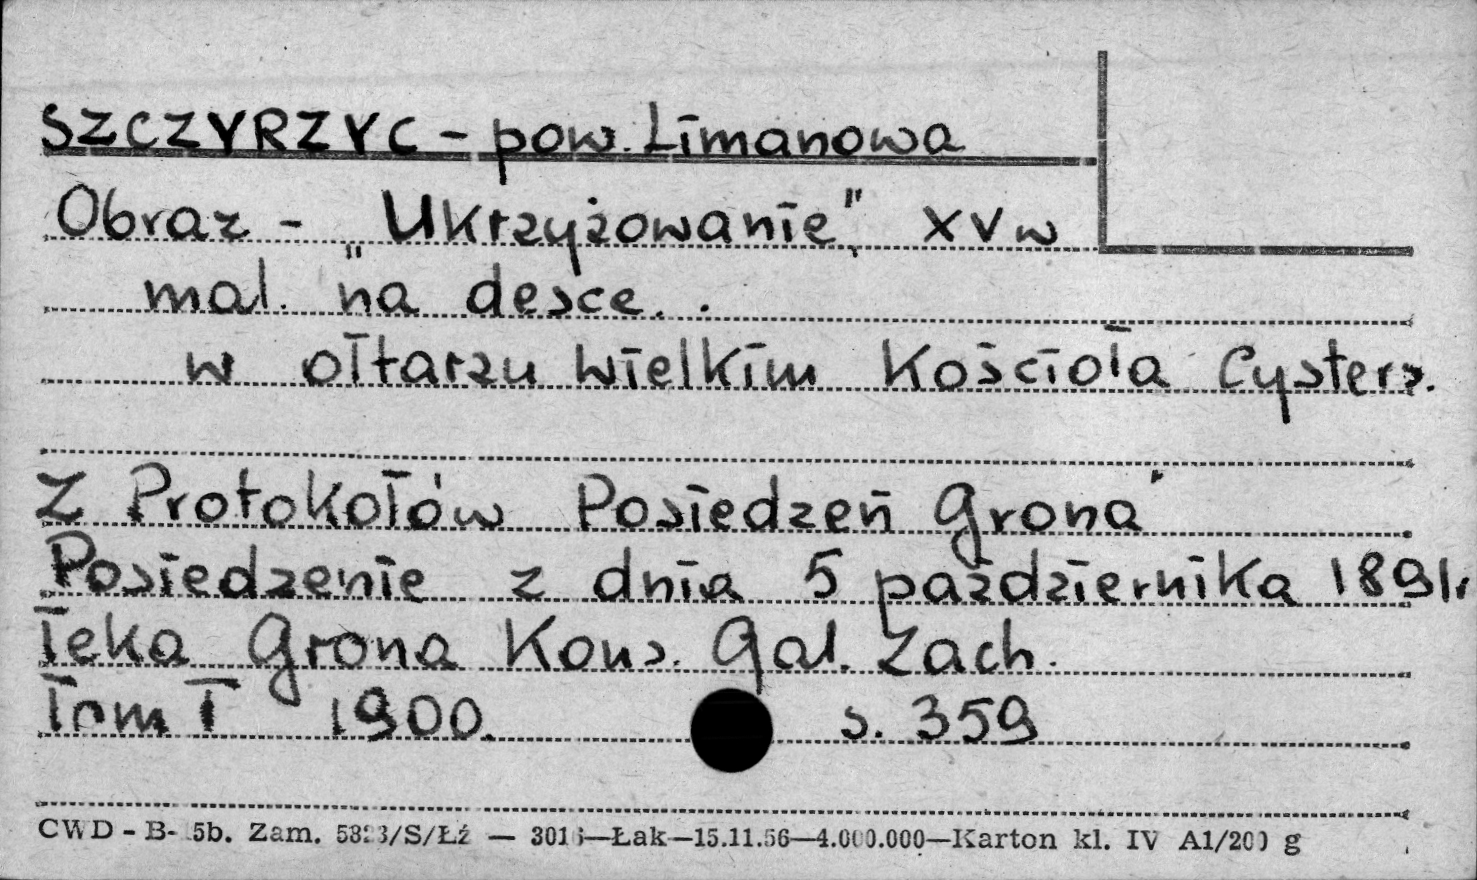 SZCZYRZYC - pow. Limanowa
Obraz - „Ukrzyżowanie", XV w
mal. na desce. .
w ołtarzu wielkim Kościoła Cysters.
Z Protokołów Posiedzeń Grona
Posiedzenie z dnia 5 października 1891r
Teka Grona Kons. Gal. Zach.
Tom I 1900. s. 359
CWD - B- 5b. Zam. /S/Łź — —Łak—15.11.56—4.000.000—Karton kl. IV A1/200 g